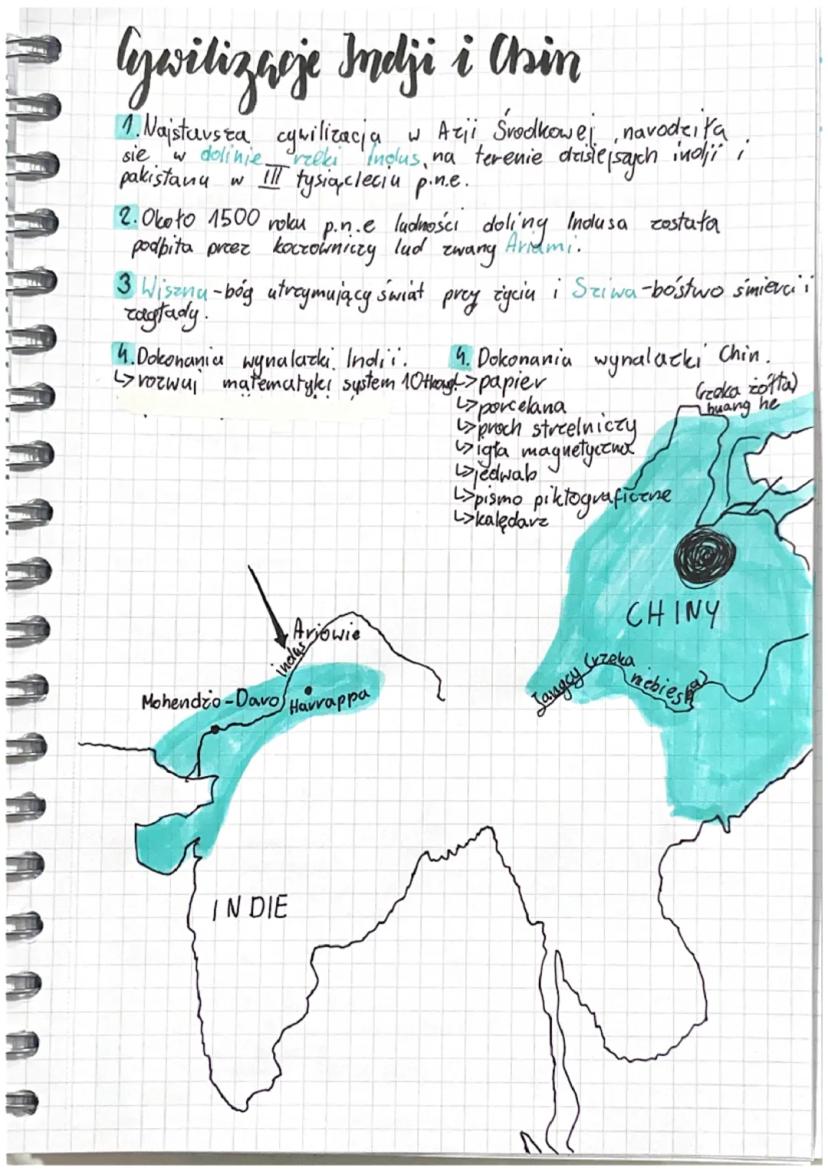 Cywilizacje Indji i Chin
1. Najstarsza cywilizacja w Azji Środkowej narodziła
się w dolinie rzeki Indus, na terenie dzisiejszych indji i
pakistanu w III tysiącleciu p.n.e.
2. Około 1500 roku p.n.e ludności doliny Indusa została
podbita przez koczowniczy lud zwany Ariami.
3 Wisznu-bóg utrzymujący świat przy życiu i Sziwa-bóstwo śmierci i
zagłady.
4. Dokonania wynalazki Indii.
↳ rozwuj matematyki system 10
4. Dokonania wynalazki Chin.
↳ papier
↳ porcelana
↳ proch strzelniczy
↳ igła magnetyczna
↳ jedwab
↳ pismo piktograficzne
↳ kalędarz
(rzeka żółta)
huang he
CHINY
Jangcy (rzeka niebieska)
Ariowie
indus
Mohendżo-Daro
Harrappa
INDIE